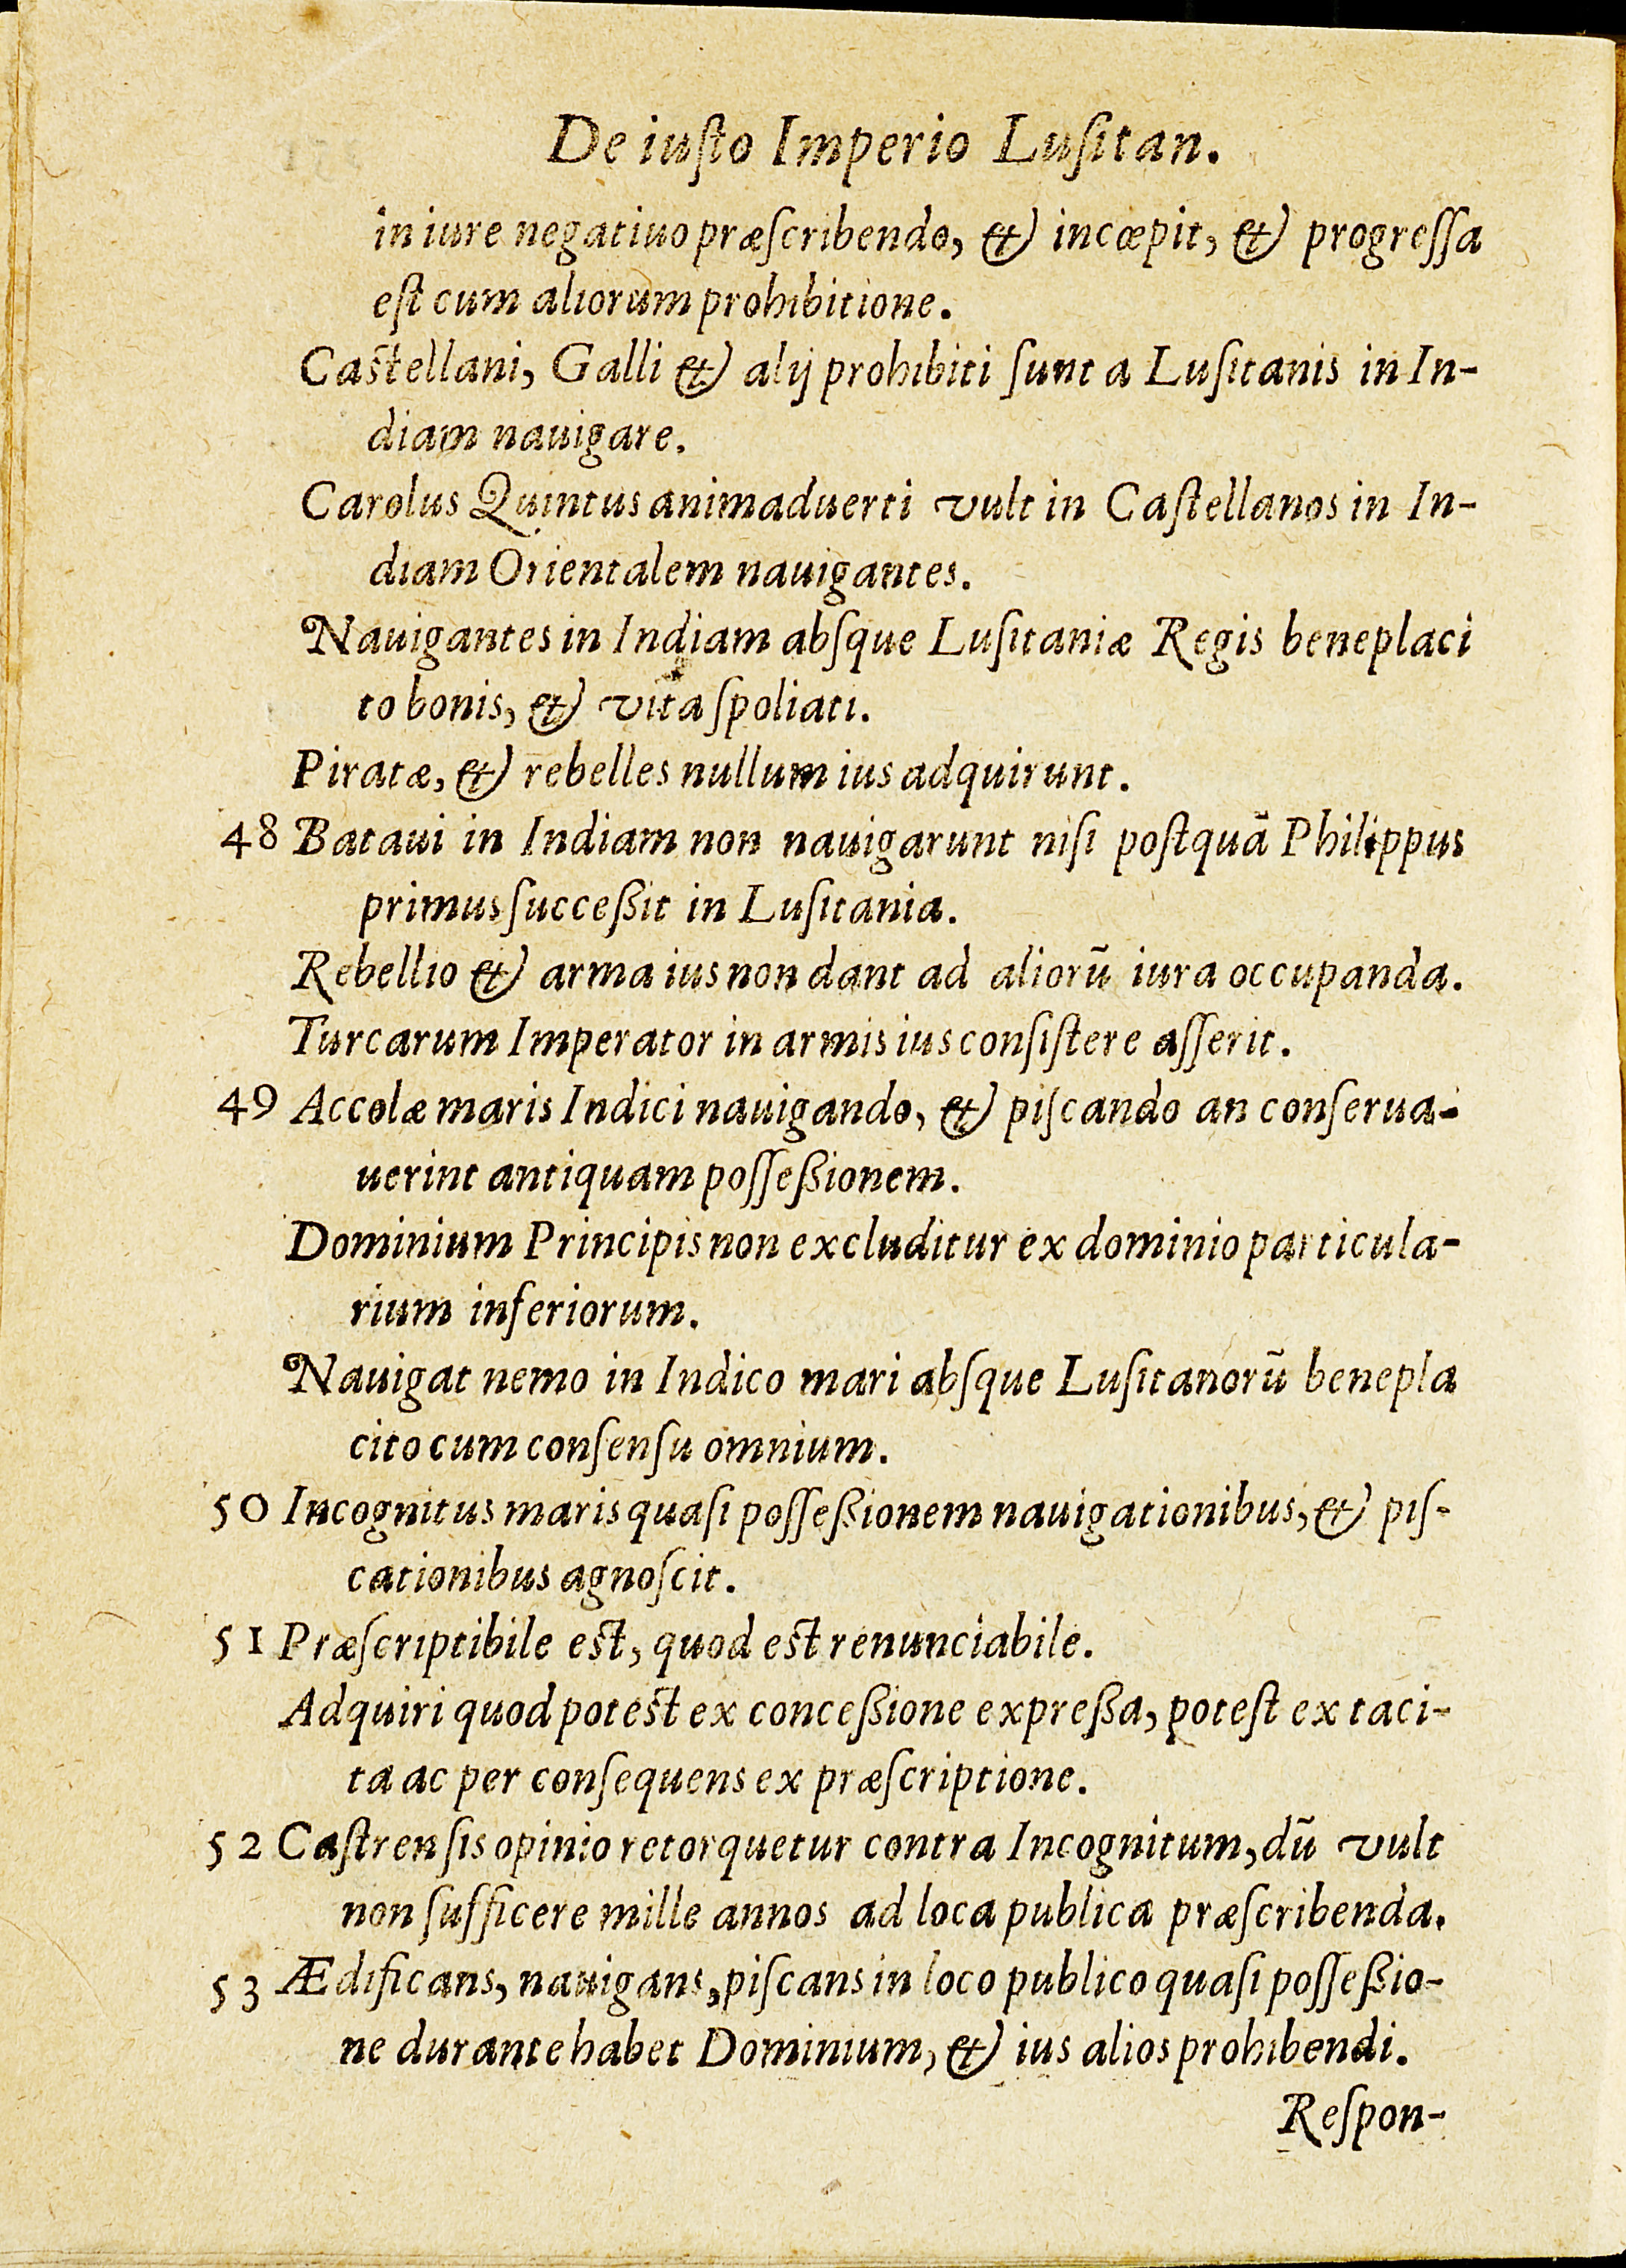 De iuſto Imperio Luſitan.
in iure negatiuo præſcribendo, & incœpit, & progreſſa
eſt cum aliorum prohibitione.
Caſtellani, Galli & alij prohibiti ſunt a Luſitanis in In-
diam nauigare.
Carolus Quintus animaduerti vult in Caſtellanos in In-
diam Orientalem nauigantes.
Nauigantes in Indiam abſque Luſitaniæ Regis beneplaci
to bonis, & vita ſpoliati.
Piratæ, & rebelles nullum ius adquirunt.
48 Bataui in Indiam non nauigarunt niſi poſtquā Philippus
primus ſucceßit in Luſitania.
Rebellio & arma ius non dant ad aliorū iura occupanda.
Turcarum Imperator in armis ius conſiſtere aſſerit.
49 Accolæ maris Indici nauigando, & piſcando an conſerua-
uerint antiquam poſſeßionem.
Dominium Principis non excluditur ex dominio particula-
rium inferiorum.
Nauigat nemo in Indico mari abſque Luſitanorū benepla
cito cum conſenſu omnium.
50 Incognitus maris quaſi poſſeßionem nauigationibus, & piſ-
cationibus agnoſcit.
51 Præſcriptibile eſt, quod eſt renunciabile.
Adquiri quod poteſt ex conceßione expreßa, poteſt ex taci-
ta ac per conſequens ex præſcriptione.
52 Caſtrenſis opinio retorquetur contra Incognitum, dū vult
non ſufficere mille annos ad loca publica præſcribenda.
53 Ædificans, nauigans, piſcans in loco publico quaſi poſſeßio-
ne durante habet Dominium, & ius alios prohibendi.
Reſpon-